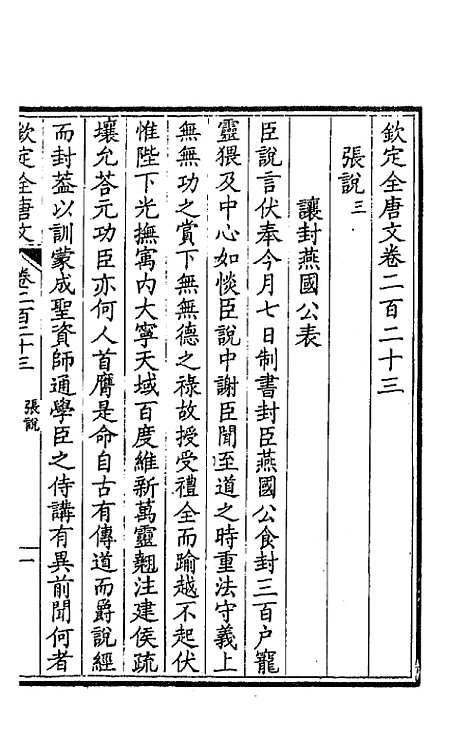 欽定全唐文卷二百二十三
張說三
讓封燕國公表
臣說言伏奉今月七日制書封臣燕國公食封三百戶寵
靈猥及中心如惔臣說中謝臣聞至道之時重法守義上
無無功之賞下無無德之祿故授受禮全而踰越不起伏
惟陛下光撫寓內大寧天域百度維新萬靈翹注建侯疏
壤允荅元功臣亦何人首膺是命自古有傳道而爵說經
而封葢以訓蒙成聖資師通學臣之侍講有異前聞何者
欽定全唐文 卷二百二十三 張說 一